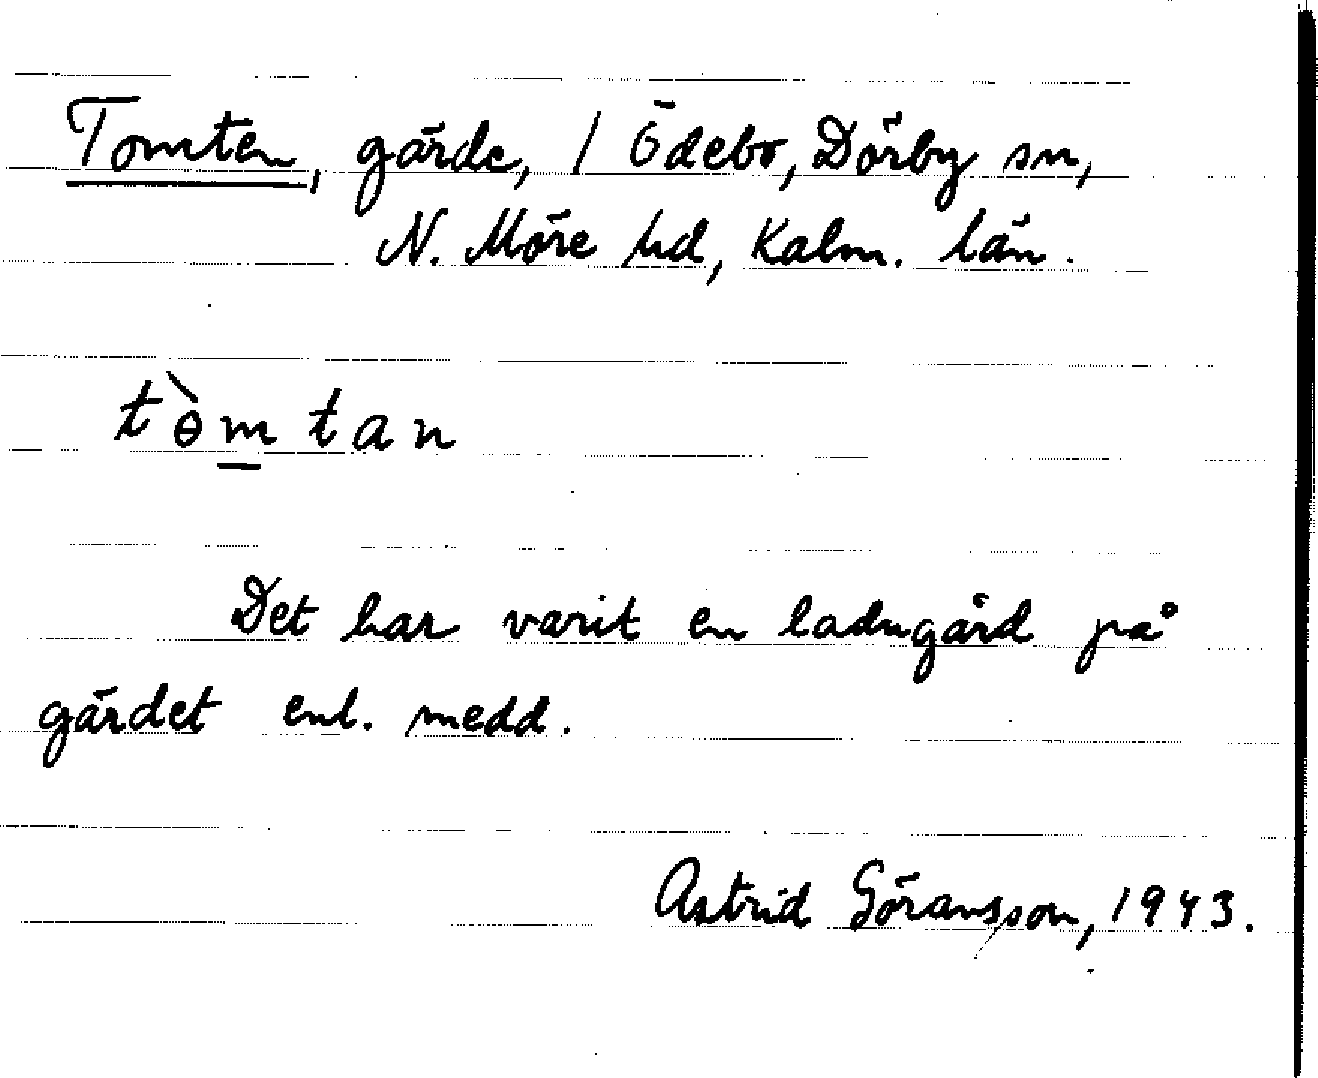 Tomten, gärde, 1 Ödebo, Dörby sn,
N. Möre hd, Kalm. län.
tɵ̀m̲tan
Det har varit en ladugård på
gärdet enl. medd.
Astrid Göransson, 1943.